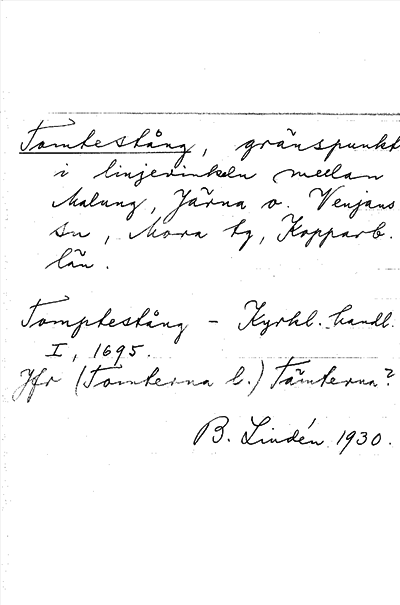 Tomtestång, gränspunkt
i linjevinkeln mellan
Malung, Järna o. Venjans
sn, Mora tg, Kopparb.
län.
Tomptestång - Kyrkl. handl.
I, 1695.
Jfr (Tomterna b.) Tämterna?
B. Lindén 1930.